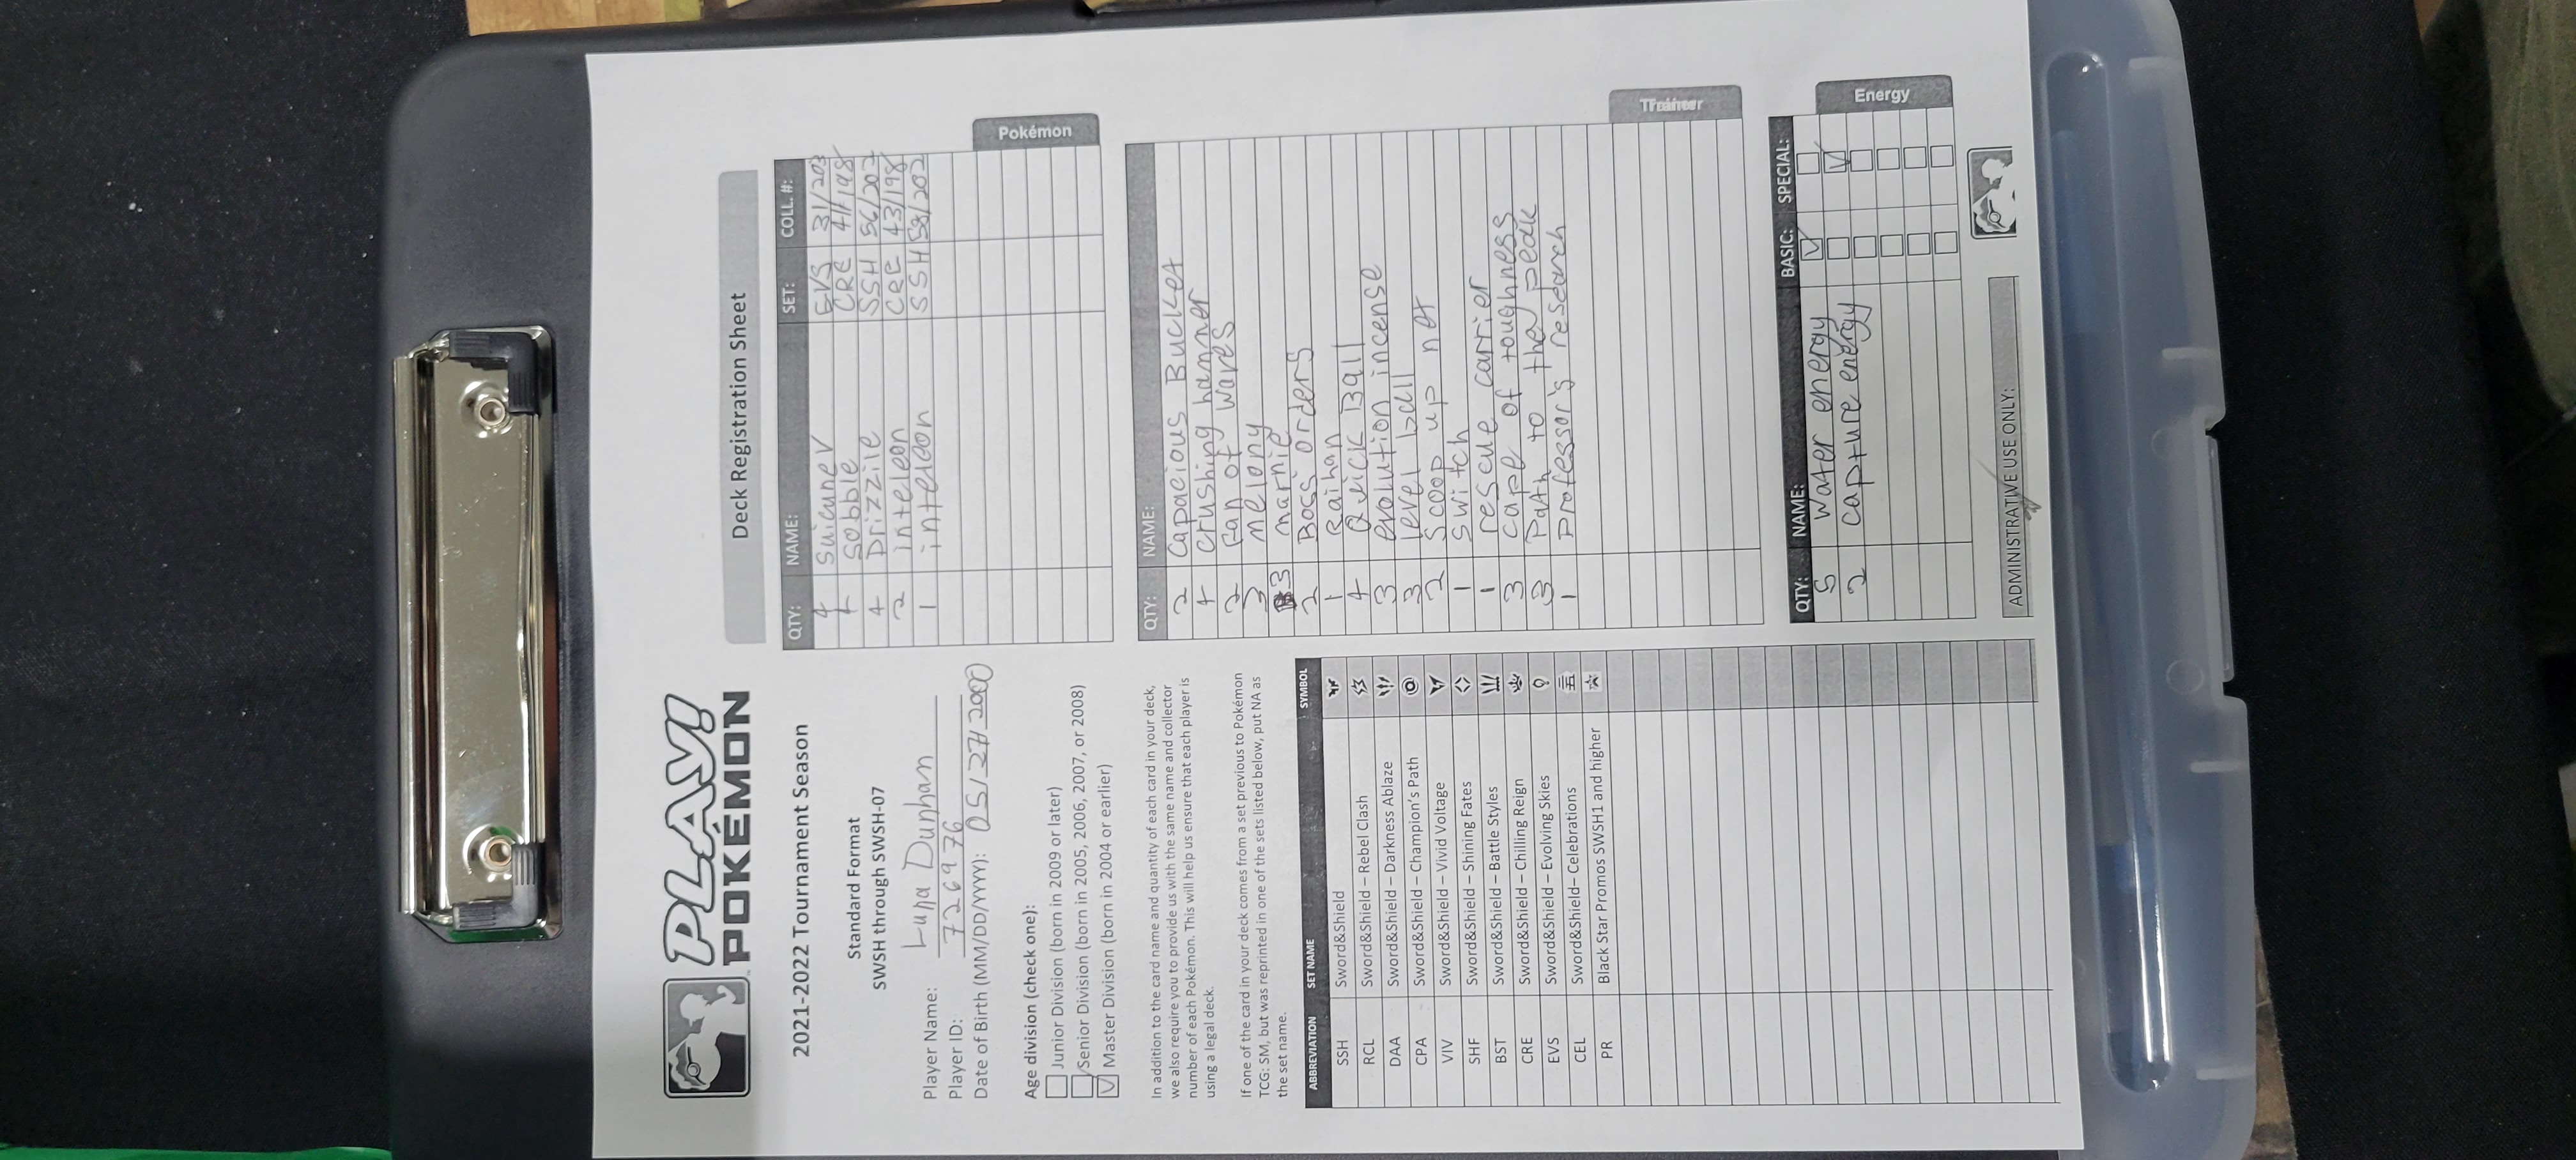 PLAY!
POKÉMON
2021-2022 Tournament Season
Standard Format
SWSH through SWSH-07
Player Name: Luna Dunham
Player ID: 726976
Date of Birth (MM/DD/YYYY): 05/27/2000
Age division (check one):
Junior Division (born in 2009 or later)
Senior Division (born in 2005, 2006, 2007, or 2008)
Master Division (born in 2004 or earlier)
In addition to the card name and quantity of each card in your deck,
we also require you to provide us with the same name and collector
number of each Pokémon. This will help us ensure that each player is
using a legal deck.
If one of the card in your deck comes from a set previous to Pokémon
TCG: SM, but was reprinted in one of the sets listed below, put NA as
the set name.
ABBREVIATION SET NAME SYMBOL
SSH Sword&Shield
RCL Sword&Shield – Rebel Clash
DAA Sword&Shield – Darkness Ablaze
CPA Sword&Shield – Champion's Path
VIV Sword&Shield – Vivid Voltage
SHF Sword&Shield – Shining Fates
BST Sword&Shield – Battle Styles
CRE Sword&Shield – Chilling Reign
EVS Sword&Shield – Evolving Skies
CEL Sword&Shield– Celebrations
PR Black Star Promos SWSH1 and higher
Deck Registration Sheet
QTY: NAME: SET: COLL. #:
4 Suicune V EVS 31/203
4 Sobble CRE 41/198
4 Drizzile SSH 56/202
2 inteleon CRE 43/198
1 inteleon SSH 58/202
Pokémon
QTY: NAME:
2 Capacious Bucket
4 crushing hammer
2 Fan of waves
3 melony
3 marnie
2 Boss orders
1 Raihan
4 Quick Ball
3 evolution incense
3 level ball
2 Scoop up net
1 switch
1 rescue carrier
3 cape of toughness
3 Path to the peak
1 Professor's research
Trainer
QTY: NAME: BASIC: SPECIAL:
5 Water energy
2 capture energy
Energy
ADMINISTRATIVE USE ONLY: